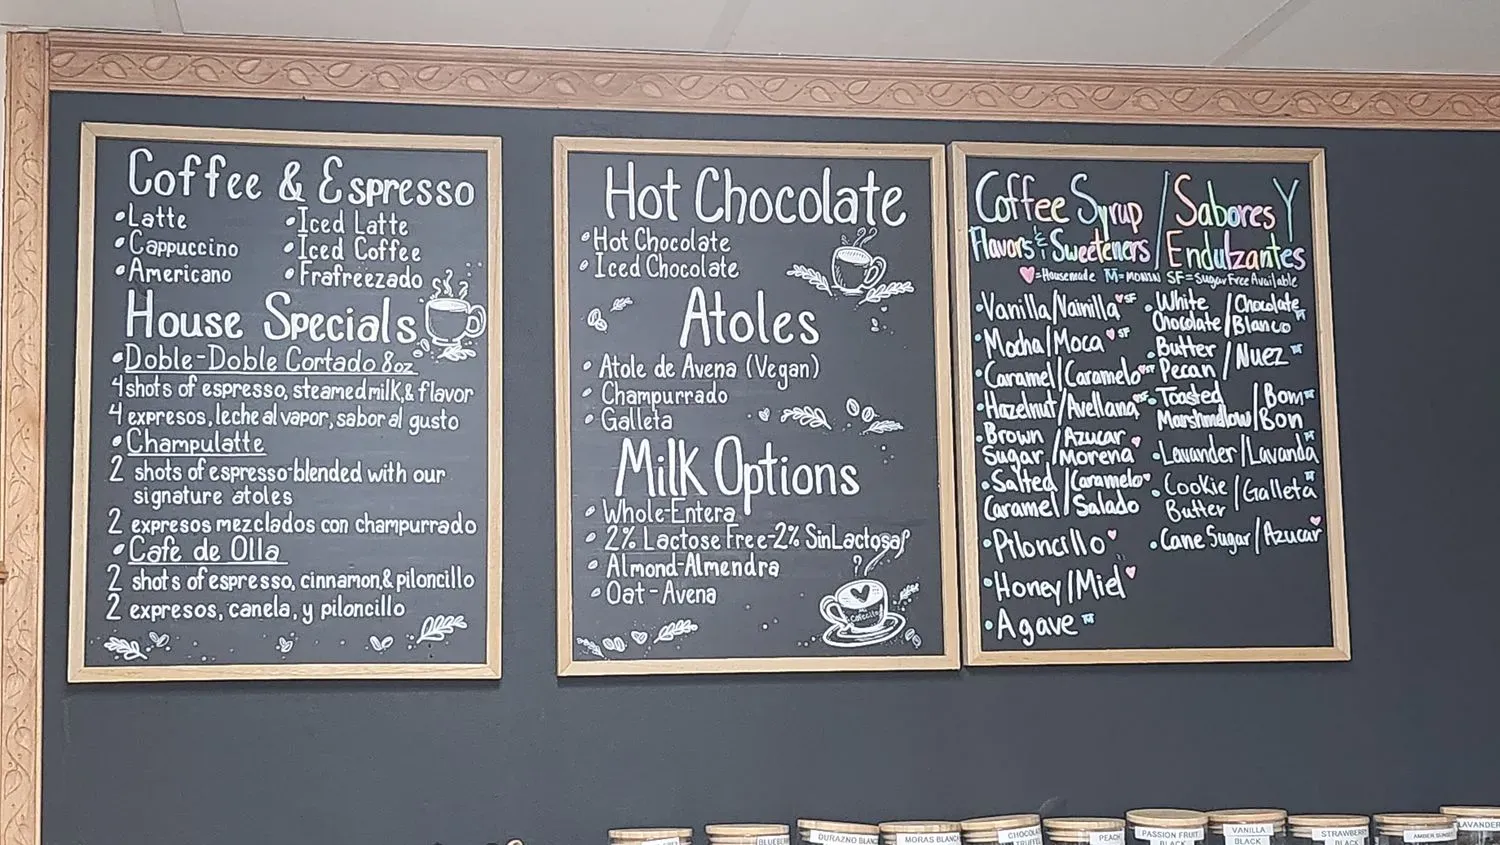 Coffee & Espresso
•Latte
•Cappuccino
•Americano
•Iced Latte
•Iced Coffee
•Frafreezado
House Specials
•Doble-Doble Cortado 8oz
4 shots of espresso, steamed milk, & flavor
4 expresos, leche al vapor, sabor al gusto
•Champulatte
2 shots of espresso-blended with our
signature atoles
2 expresos mezclados con champurrado
•Cafe de Olla
2 shots of espresso, cinnamon, & piloncillo
2 expresos, canela, y piloncillo
Hot Chocolate
•Hot Chocolate
•Iced Chocolate
Atoles
•Atole de Avena (Vegan)
•Champurrado
•Galleta
Milk Options
•Whole-Entera
•2% Lactose Free-2% Sin Lactosa
•Almond-Almendra
•Oat-Avena
Cafecito
Coffee Syrup / Sabores Y
Flavors & Sweeteners / Endulzantes
♥=Housemade M=MONIN SF=Sugar Free Available
•Vanilla/Vainilla ♥SF
•Mocha/Moca ♥SF
•Caramel/Caramelo ♥SF
•Hazelnut/Avellana ♥SF
•Brown / Azucar
Sugar / Morena ♥
•Salted / Caramelo ♥
Caramel / Salado
•Piloncillo ♥
•Honey/Miel ♥
•Agave M
•White / Chocolate
Chocolate / Blanco M
•Butter
Pecan / Nuez M
•Toasted / Bom M
Marshmellow / Bon
•Lavander / Lavanda M
•Cookie / Galleta M
Butter
•Cane Sugar / Azucar ♥
BLUEBER
DURAZNO BLANC
MORAS BLANC
CHOCOLA
TRUFFL
PEACH
PASSION FRUIT
BLACK
VANILLA
BLACK
STRAWBERR
BLACK
AMBER SUNSET
LAVANDER